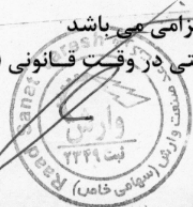 رامی می باشد
تی در وقـت قـانونی (
وارش
ثبت ۲۲۴۹
صنعت وارش (سهامی خاص)
Raad Sanat